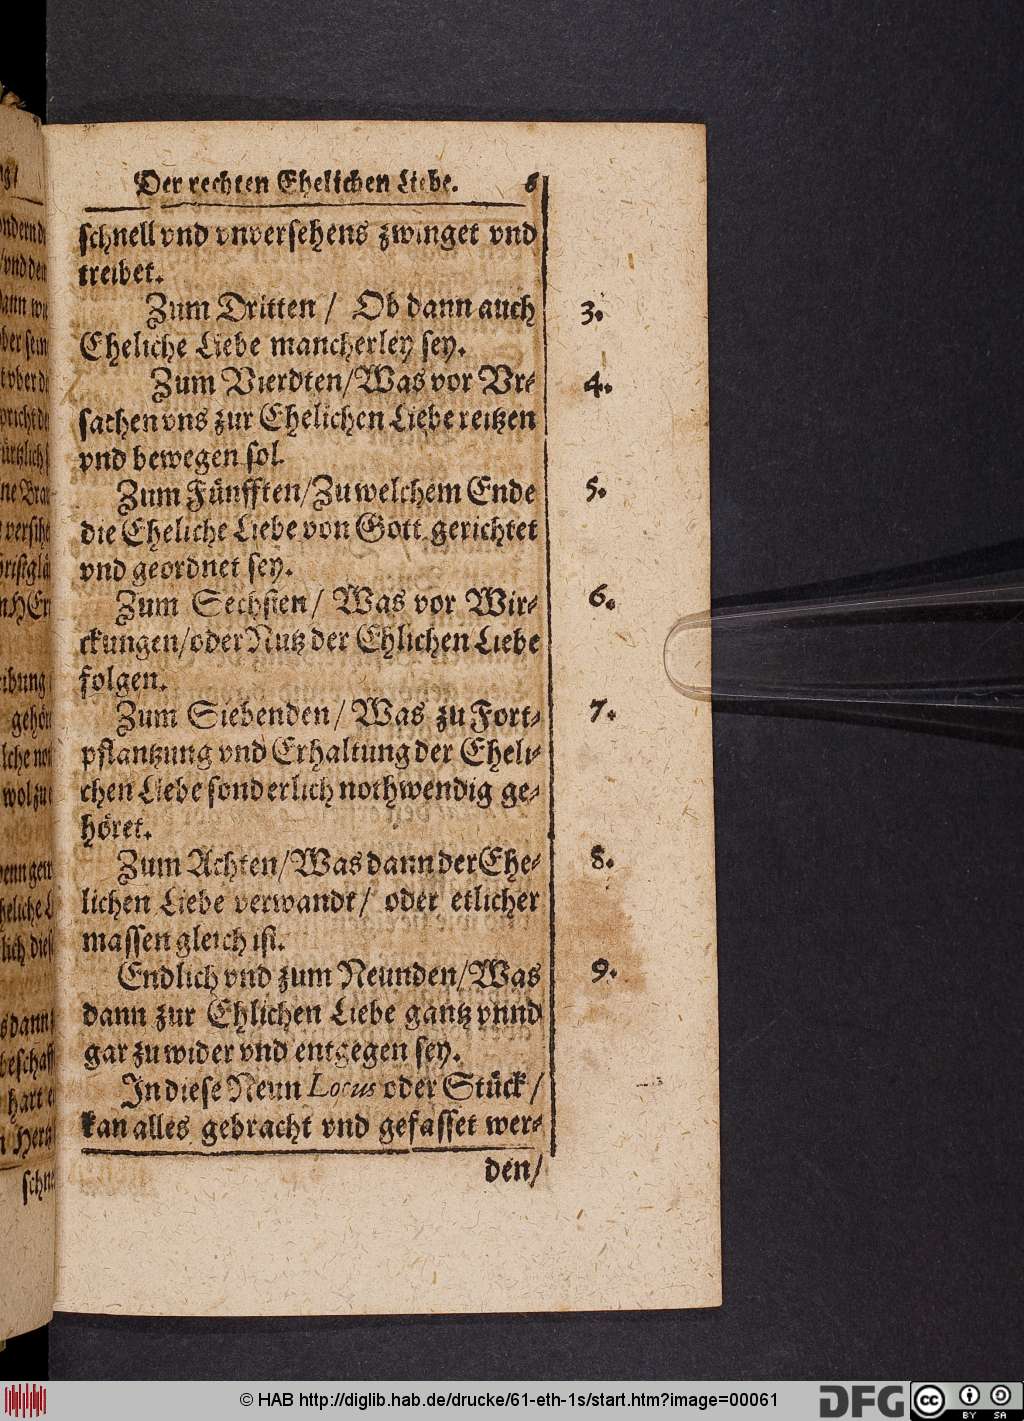 Der rechten Ehelichen Liebe. 6
schnell vnd vnversehens zwinget vnd
treibet.
Zum Dritten / Ob dann auch
3.
Eheliche Liebe mancherley sey.
Zum Vierdten/Was vor Vr-
4.
sachen vns zur Ehelichen Liebe reitzen
vnd bewegen sol.
Zum Fünfften/Zu welchem Ende
5.
die Eheliche Liebe von Gott gerichtet
vnd geordnet sey.
Zum Sechsten/ Was vor Wir-
6.
ckungen/oder Nutz der Ehlichen Liebe
folgen.
Zum Siebenden/ Was zu Fort-
7.
pflantzung vnd Erhaltung der Eheli-
chen Liebe sonderlich nothwendig ge-
höret.
Zum Achten/Was dann der Ehe-
8.
lichen Liebe verwandt/ oder etlicher
massen gleich ist.
Endlich vnd zum Neunden/Was
9.
dann zur Ehlichen Liebe gantz vnnd
gar zu wider vnd entgegen sey.
In diese Neun Locus oder Stück/
kan alles gebracht vnd gefasset wer-
den/
© HAB http://diglib.hab.de/drucke/61-eth-1s/start.htm?image=00061
DFG
cc
BY SA